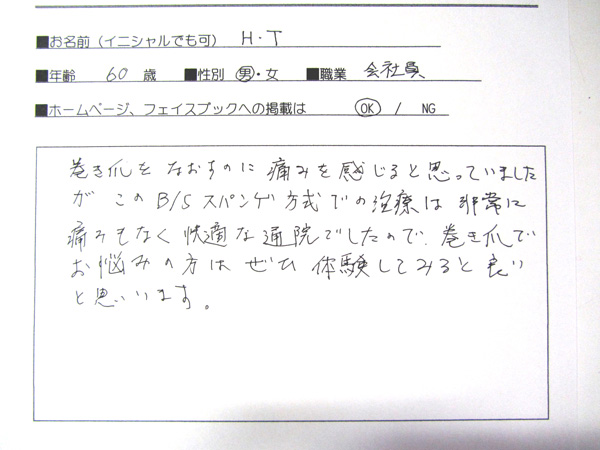 ■お名前(イニシャルでも可) H・T
■年齢 60 歳 ■性別 男・女 ■職業 会社員
■ホームページ、フェイスブックへの掲載は OK / NG
巻き爪をなおすのに痛みを感じると思っていました
が このB/Sスパンゲ方式での治療は非常に
痛みもなく快適な通院でしたので、巻き爪で
お悩みの方はぜひ体験してみると良い
と思いいます。